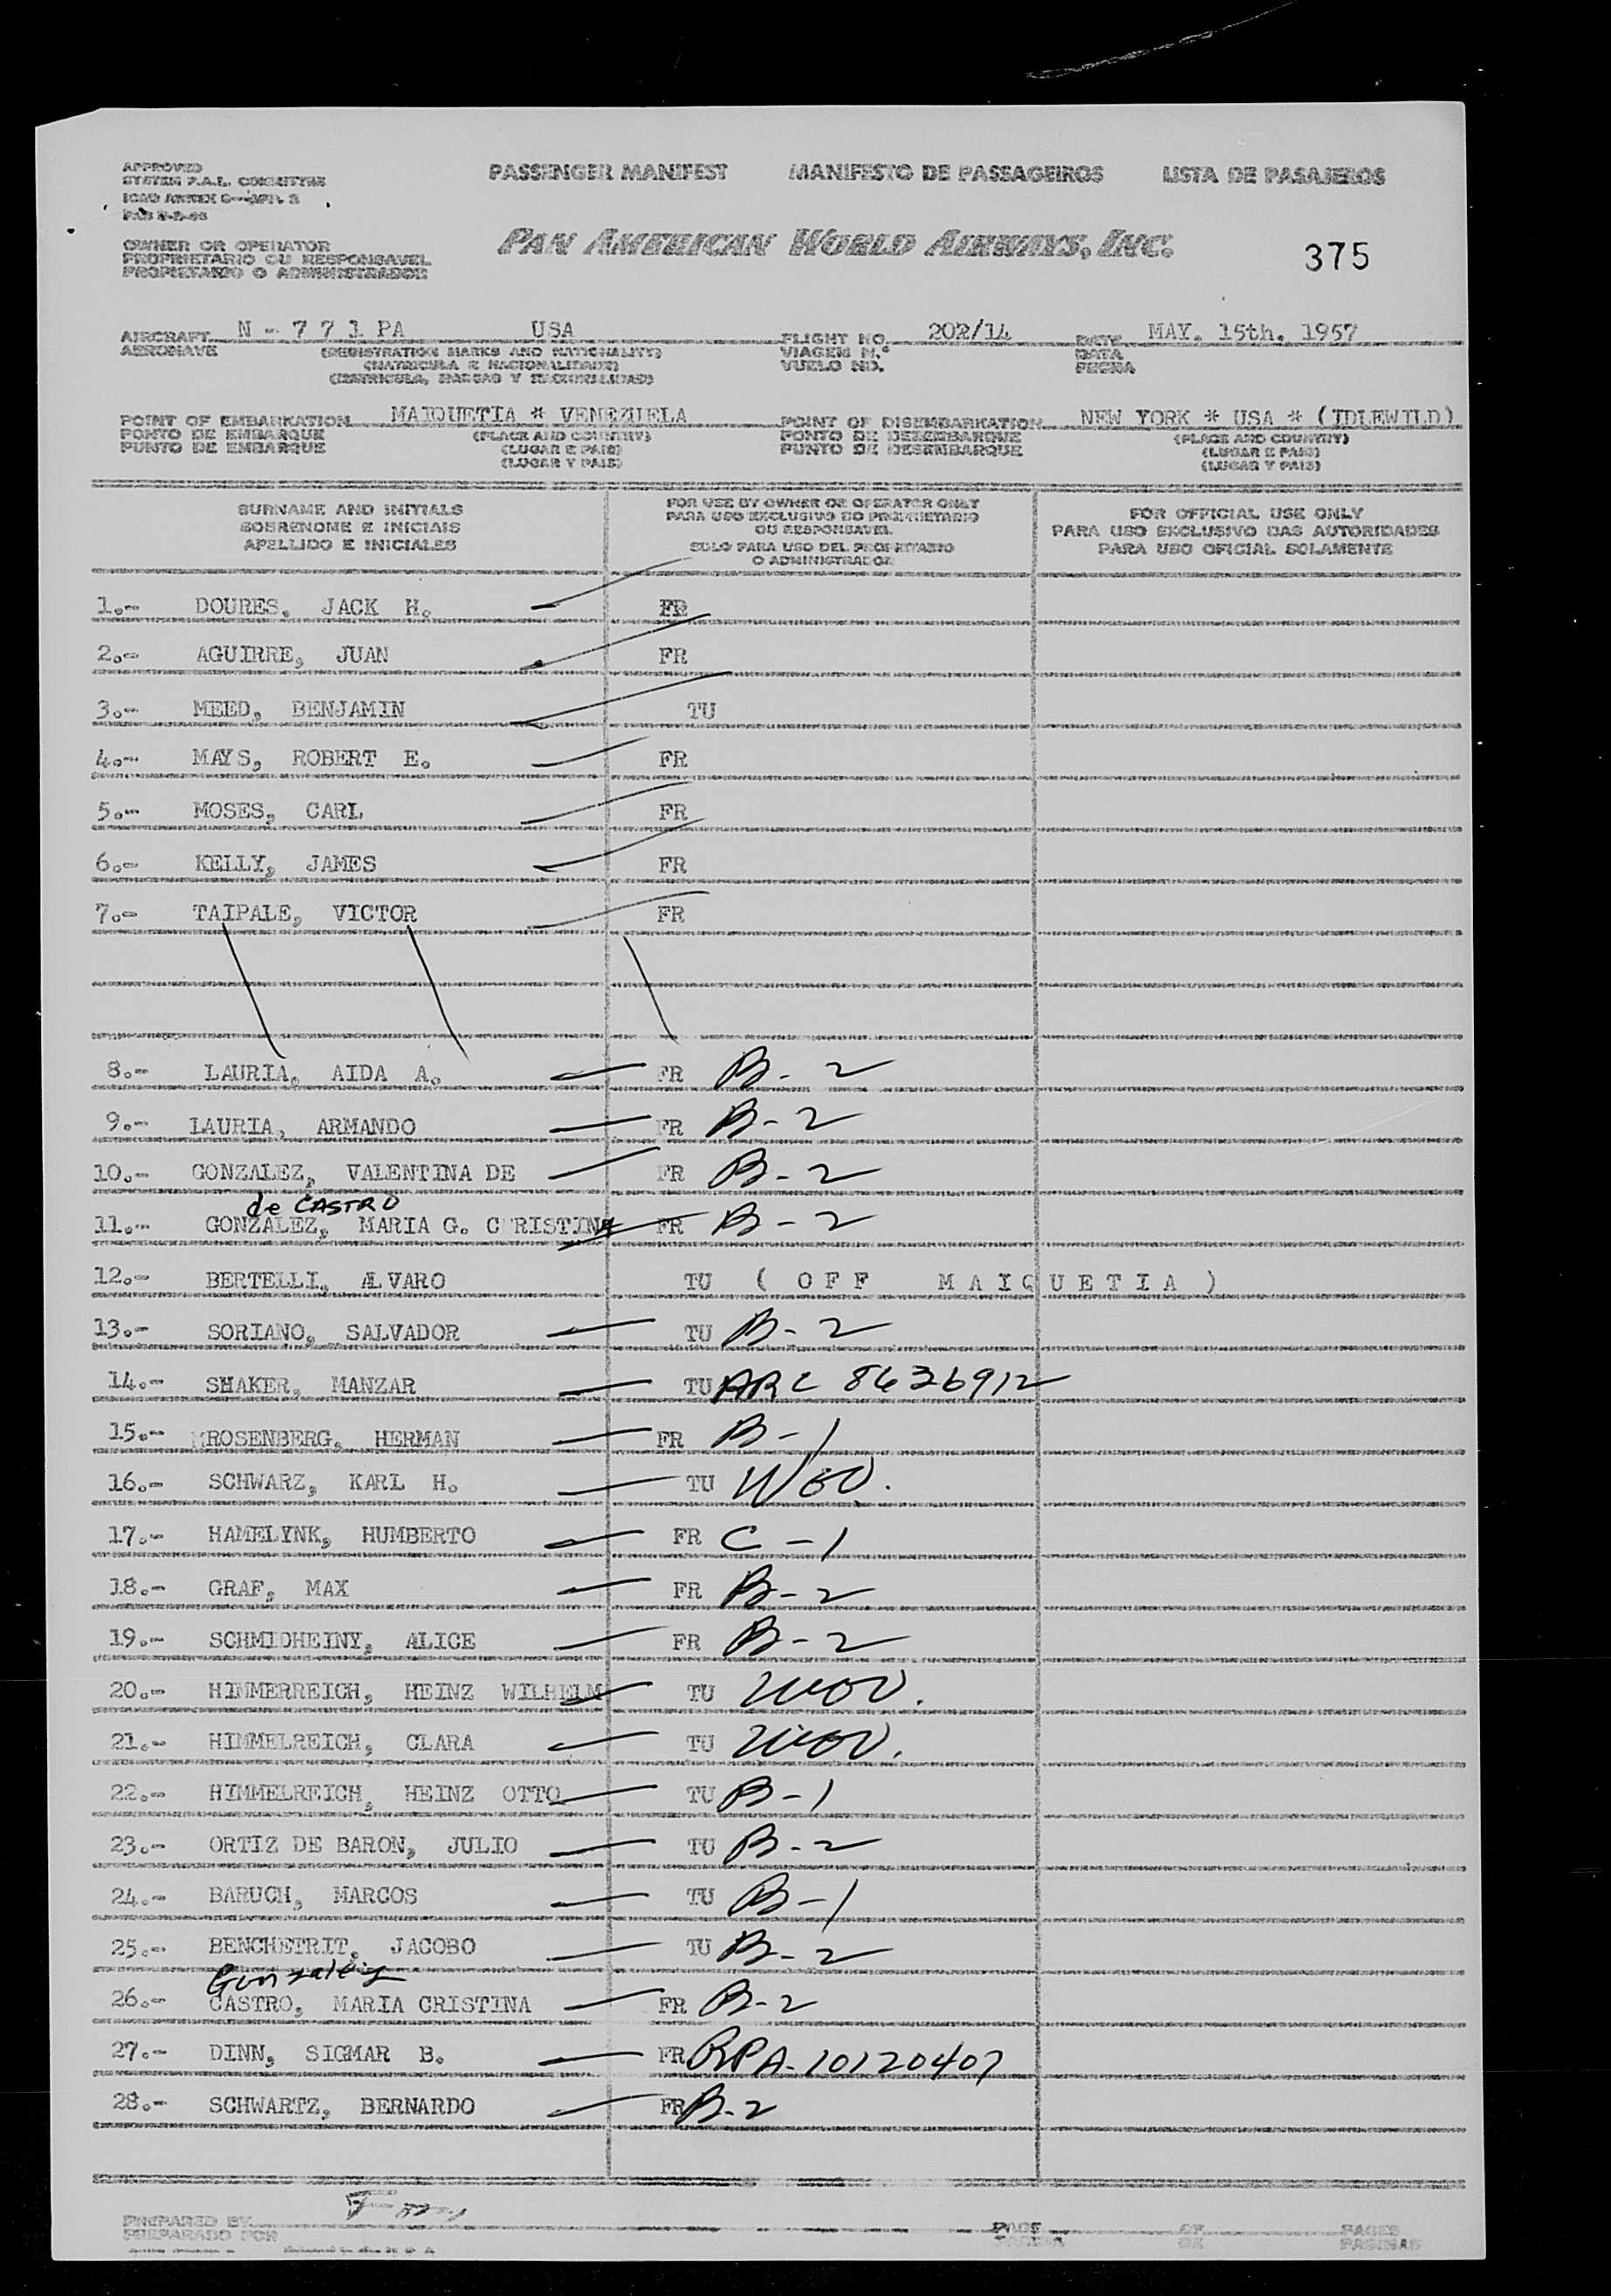 APPROVED
SYSTEM F.A.L. COMMITTEE
PASSENGER MANIFEST MANIFESTO DE PASSAGEIROS LISTA DE PASAJEROS
OWNER OR OPERATOR
PROPRIETARIO OU RESPONSAVEL
PROPIETARIO O ADMINISTRADOR
PAN AMERICAN WORLD AIRWAYS, INC.
375
AIRCRAFT N - 7 7 1 PA USA FLIGHT NO. 202/14 DATE MAY. 15th. 1957
AERONAVE (REGISTRATION MARKS AND NATIONALITY) VIAGEM N.° DATA
(MATRICULA E NACIONALIDADE) VUELO NO. FECHA
(MATRICULA, MARCAS Y NACIONALIDAD)
POINT OF EMBARKATION MAIQUETIA * VENEZUELA POINT OF DISEMBARKATION NEW YORK * USA * (IDLEWILD)
PONTO DE EMBARQUE (PLACE AND COUNTRY) PONTO DE DESEMBARQUE (PLACE AND COUNTRY)
PUNTO DE EMBARQUE (LUGAR E PAIS) PUNTO DE DESEMBARQUE (LUGAR E PAIS)
(LUGAR Y PAIS) (LUGAR Y PAIS)
SURNAME AND INITIALS
SOBRENOME E INICIAIS
APELLIDO E INICIALES
FOR USE BY OWNER OR OPERATOR ONLY
PARA USO EXCLUSIVO DO PROPRIETARIO
OU RESPONSAVEL
SOLO PARA USO DEL PROPIETARIO
O ADMINISTRADOR
FOR OFFICIAL USE ONLY
PARA USO EXCLUSIVO DAS AUTORIDADES
PARA USO OFICIAL SOLAMENTE
1.- DOURES, JACK H. FR
2.- AGUIRRE, JUAN FR
3.- MEED, BENJAMIN TU
4.- MAYS, ROBERT E. FR
5.- MOSES, CARL FR
6.- KELLY, JAMES FR
7.- TAIPALE, VICTOR FR
8.- LAURIA, AIDA A. FR B-2
9.- LAURIA, ARMANDO FR B-2
10.- GONZALEZ, VALENTINA DE FR B-2
de CASTRO
11.- GONZALEZ, MARIA G. CRISTINA FR B-2
12.- BERTELLI, ALVARO TU ( OFF MAIQUETIA )
13.- SORIANO, SALVADOR TU B-2
14.- SHAKER, MANZAR TU ARC 8636912
15.- ROSENBERG, HERMAN FR B-1
16.- SCHWARZ, KARL H. TU WOV.
17.- HAMELYNK, HUMBERTO FR C-1
18.- GRAF, MAX FR B-2
19.- SCHMIDHEINY, ALICE FR B-2
20.- HIMMERREICH, HEINZ WILHELM TU WOV.
21.- HIMMELREICH, CLARA TU WOV.
22.- HIMMELREICH, HEINZ OTTO TU B-1
23.- ORTIZ DE BARON, JULIO TU B-2
24.- BARUCH, MARCOS TU B-1
25.- BENCHETRIT, JACOBO TU B-2
Gonzalez
26.- CASTRO, MARIA CRISTINA FR B-2
27.- DINN, SIGMAR B. FR RPA-10120407
28.- SCHWARTZ, BERNARDO FR B-2
PREPARED BY PAGE OF PAGES
PREPARADO POR PAGINA DE PAGINAS